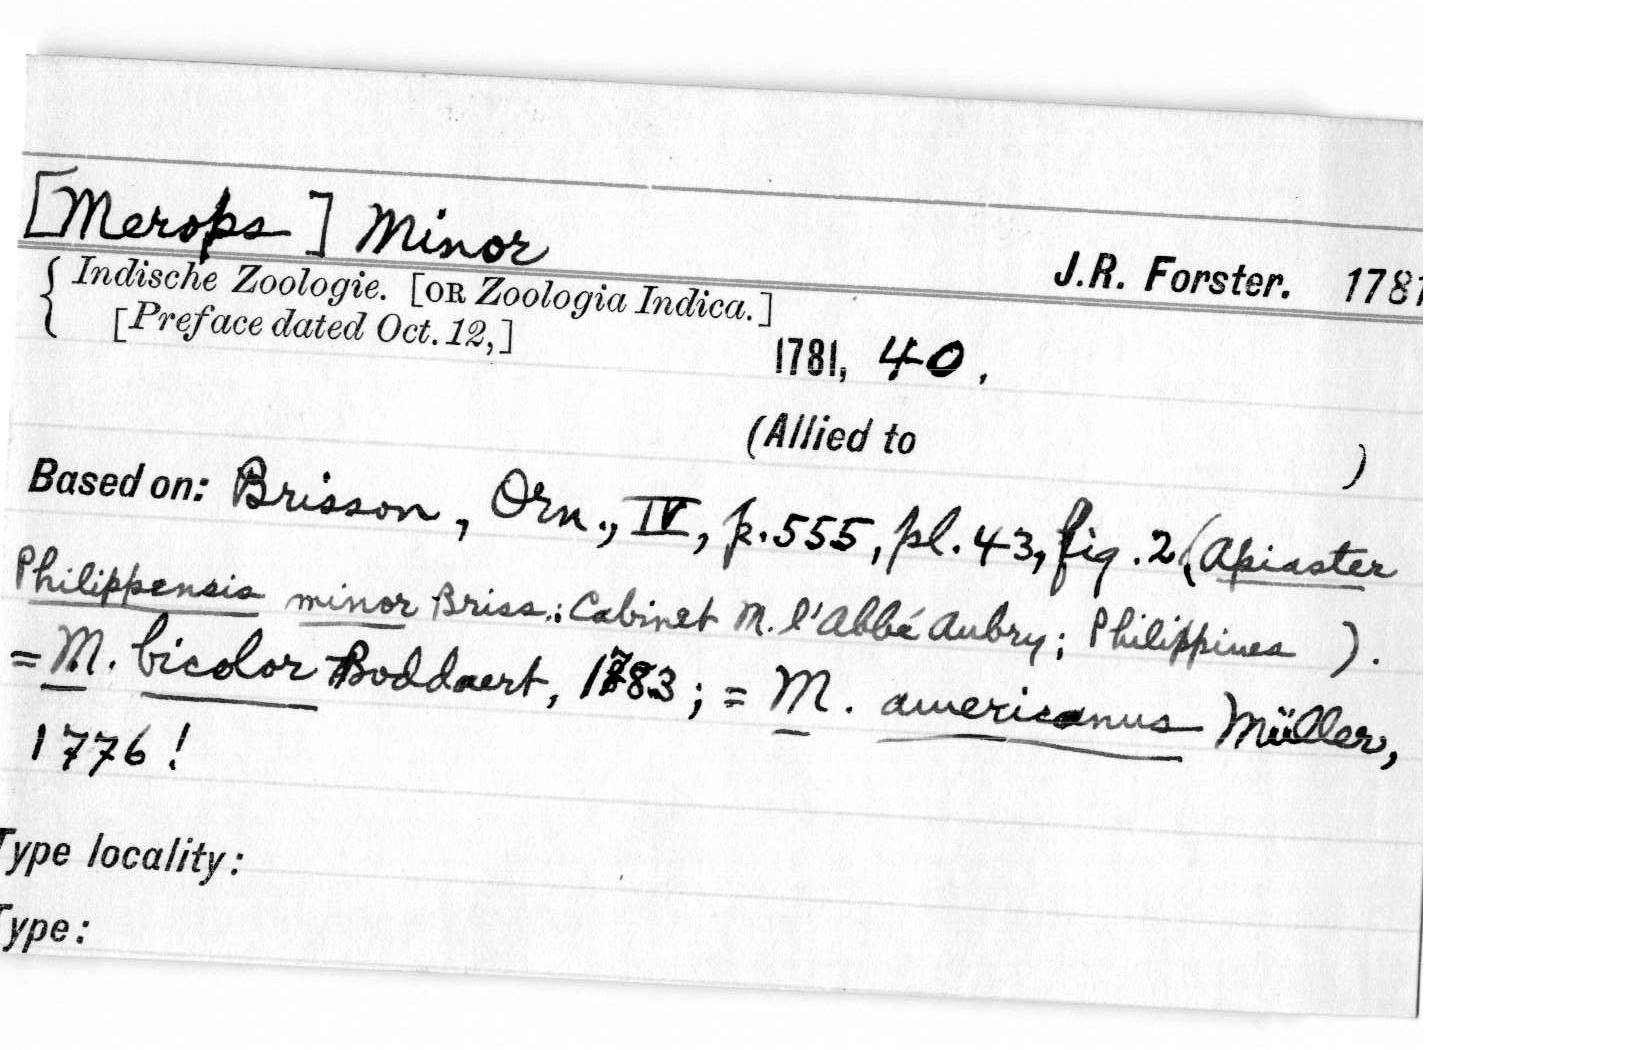 [Merops] Minor
J.R. Forster. 1781
{ Indische Zoologie. [OR Zoologia Indica.]
[Preface dated Oct. 12,]
1781, 40.
(Allied to )
Based on: Brisson, Orn., IV, p.555, pl.43, fig.2 (Apiaster
Philippensis minor Briss.: Cabinet M. l'Abbé Aubry; Philippines ).
=M. bicolor Boddaert, 1783; = M. americanus Müller,
1776!
Type locality:
Type: